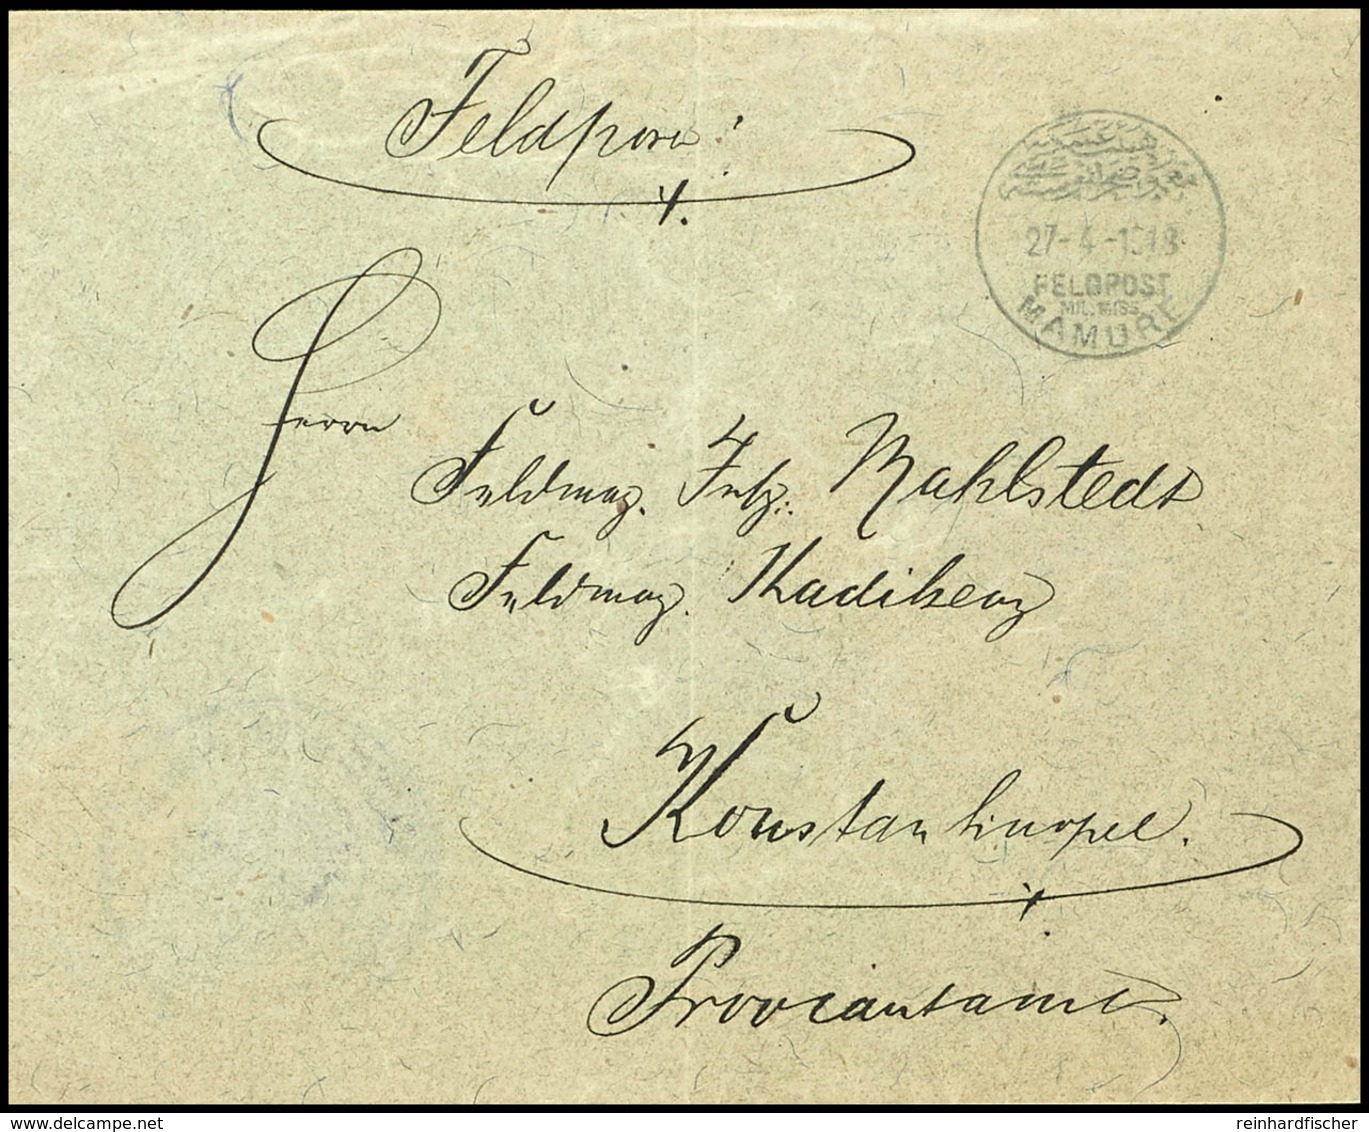 Feldpost
27-4-1918
FELDPOST
MIL. MISS.
MAMURE
Herrn
Feldmag. Insp. Mahlstedt
Feldmag. Kadikeuy
Konstantinopel.
Proviantamt.
delcampe.net
reinhardfischer